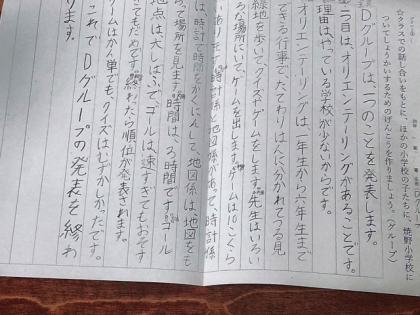 ☆クラスでの話し合いをもとに、ほかの小学校の子たちに、焼野小学校に
ついてしょうかいするためのげんこうを作りましょう。(グループ)
Dグループは、二つのことを発表します。
一つ目は、オリエンテーリングがあることです。
理由は、やっている学校が少ないからです。
オリエンテーリングは一年生から六年生まで
できる行事で、たてわりはんに分かれてする見
緑地を歩いて、クイズやゲームをします。先生はいろい
ろな場所にいて、ゲームを出します。ゲームは10こくら
あります。時計係と地図係があって、時計係
は、時計で時間をかくにんして、地図係は、地図をも
って場所を見ます。時間は、ろ時間です。ゴール
地点は大しばふで、ゴールは速すぎてもおそす
ぎてもだめです。終わったら順位が発表されます。
ゲームはかん単でも、クイズはむずかしかったです。
これでDグループの発表を終わ
ります。